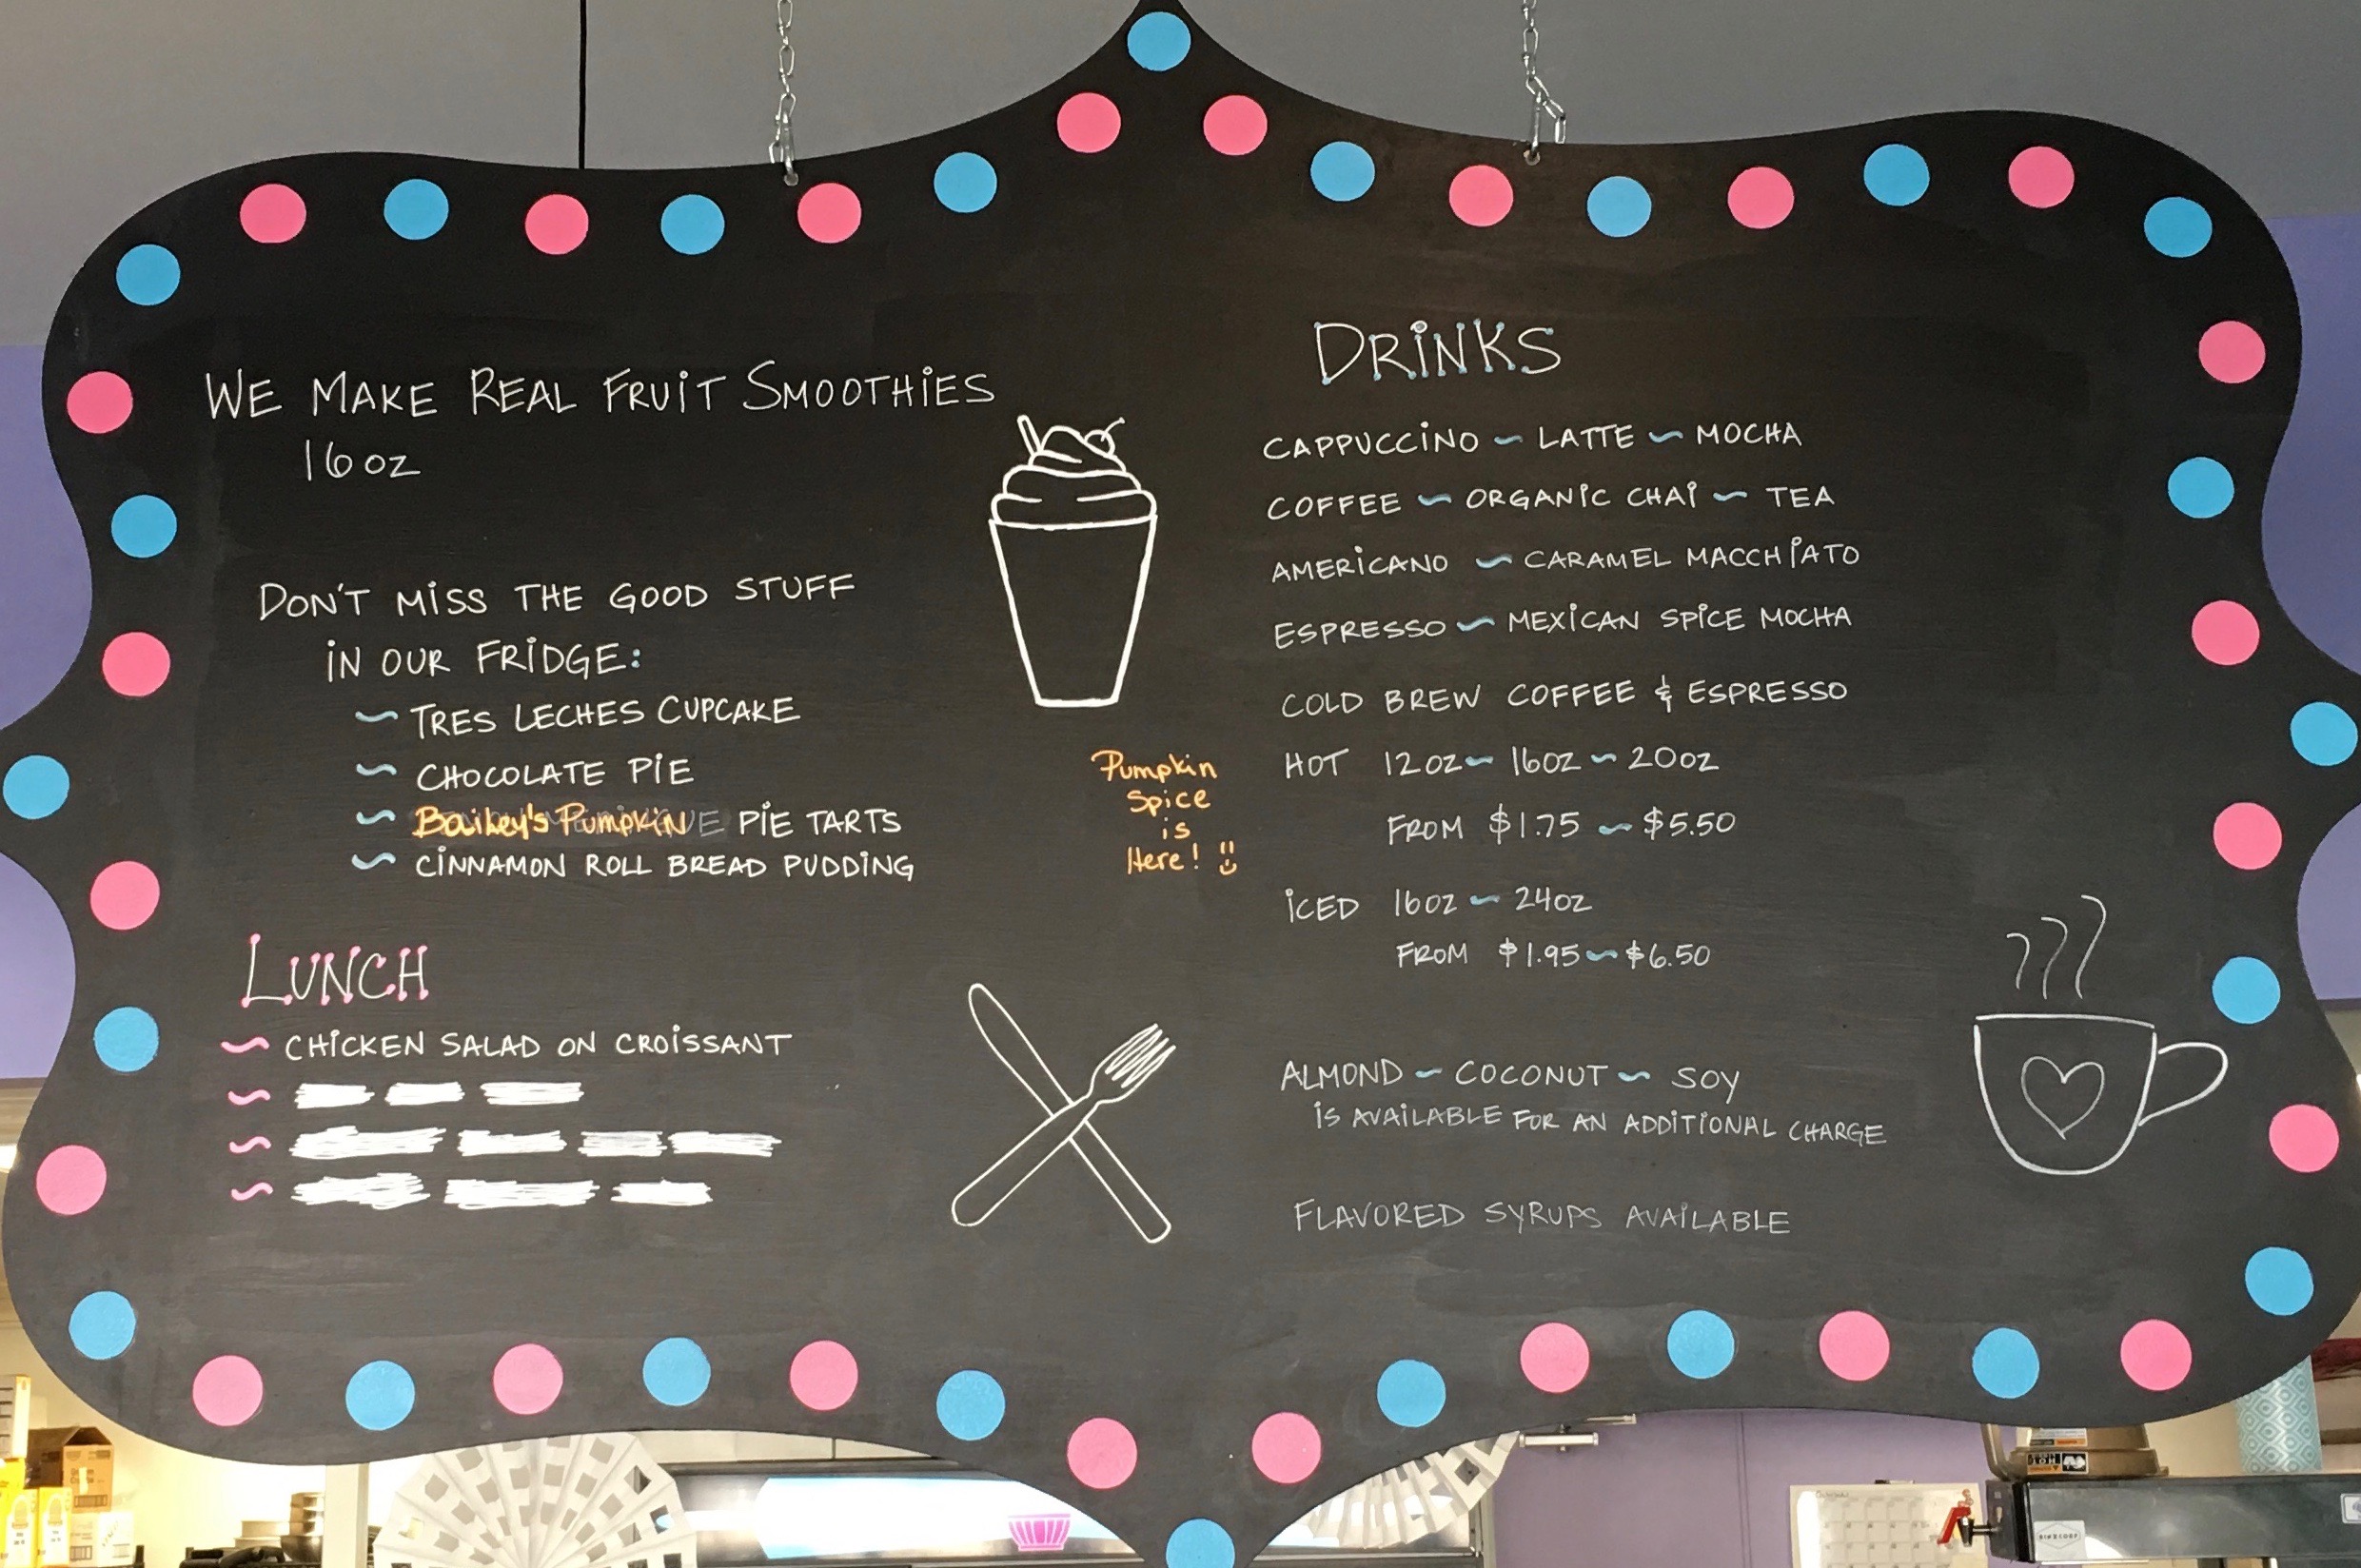 WE MAKE REAL FRUIT SMOOTHIES
16 OZ
DON'T MISS THE GOOD STUFF
IN OUR FRIDGE:
~ TRES LECHES CUPCAKE
~ CHOCOLATE PIE
~ Bailey's Pumpkin PIE TARTS
~ CINNAMON ROLL BREAD PUDDING
LUNCH
~ CHICKEN SALAD ON CROISSANT
Pumpkin
Spice
is
Here!
DRINKS
CAPPUCCINO ~ LATTE ~ MOCHA
COFFEE ~ ORGANIC CHAI ~ TEA
AMERICANO ~ CARAMEL MACCHIATO
ESPRESSO ~ MEXICAN SPICE MOCHA
COLD BREW COFFEE & ESPRESSO
HOT 12OZ ~ 16OZ ~ 20OZ
FROM $1.75 ~ $5.50
ICED 16OZ ~ 24OZ
FROM $1.95 ~ $6.50
ALMOND ~ COCONUT ~ SOY
IS AVAILABLE FOR AN ADDITIONAL CHARGE
FLAVORED SYRUPS AVAILABLE